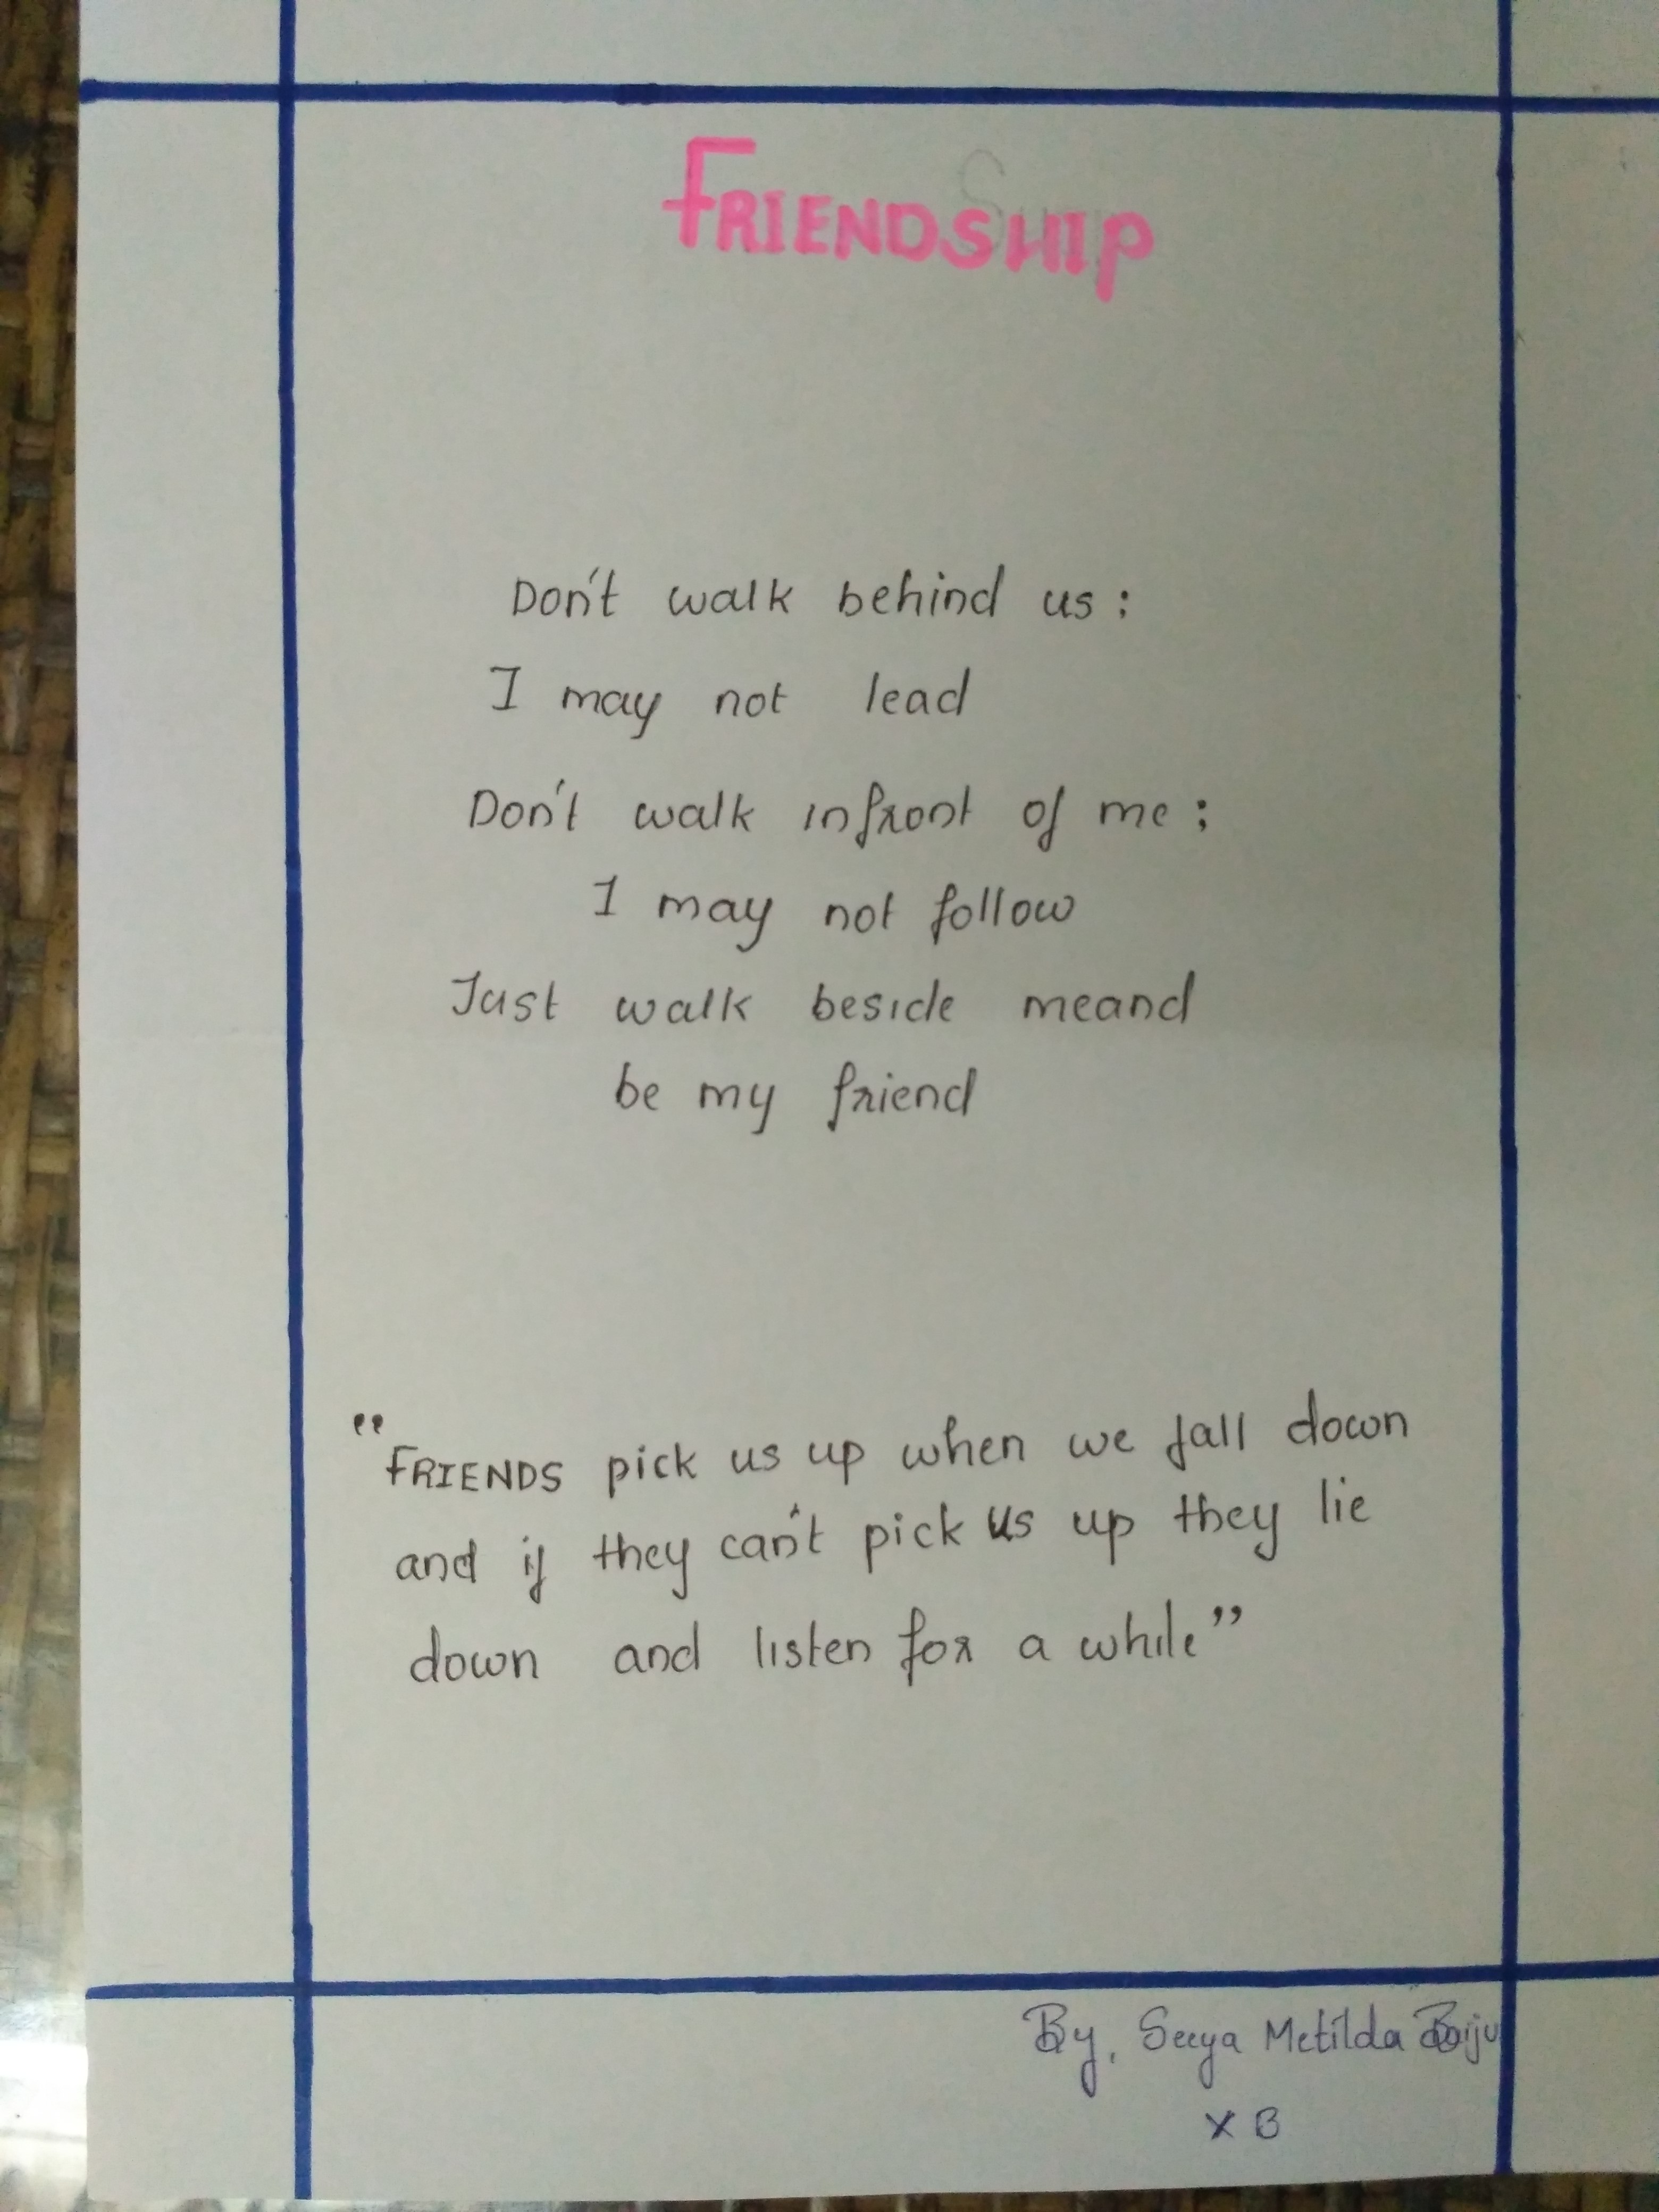 FRIENDSHIP
Don't walk behind us :
I may not lead
Don't walk infront of me ;
I may not follow
Just walk beside meand
be my friend
"FRIENDS pick us up when we fall down
and if they can't pick us up they lie
down and listen for a while"
By, Seeya Metilda Baiju
X B